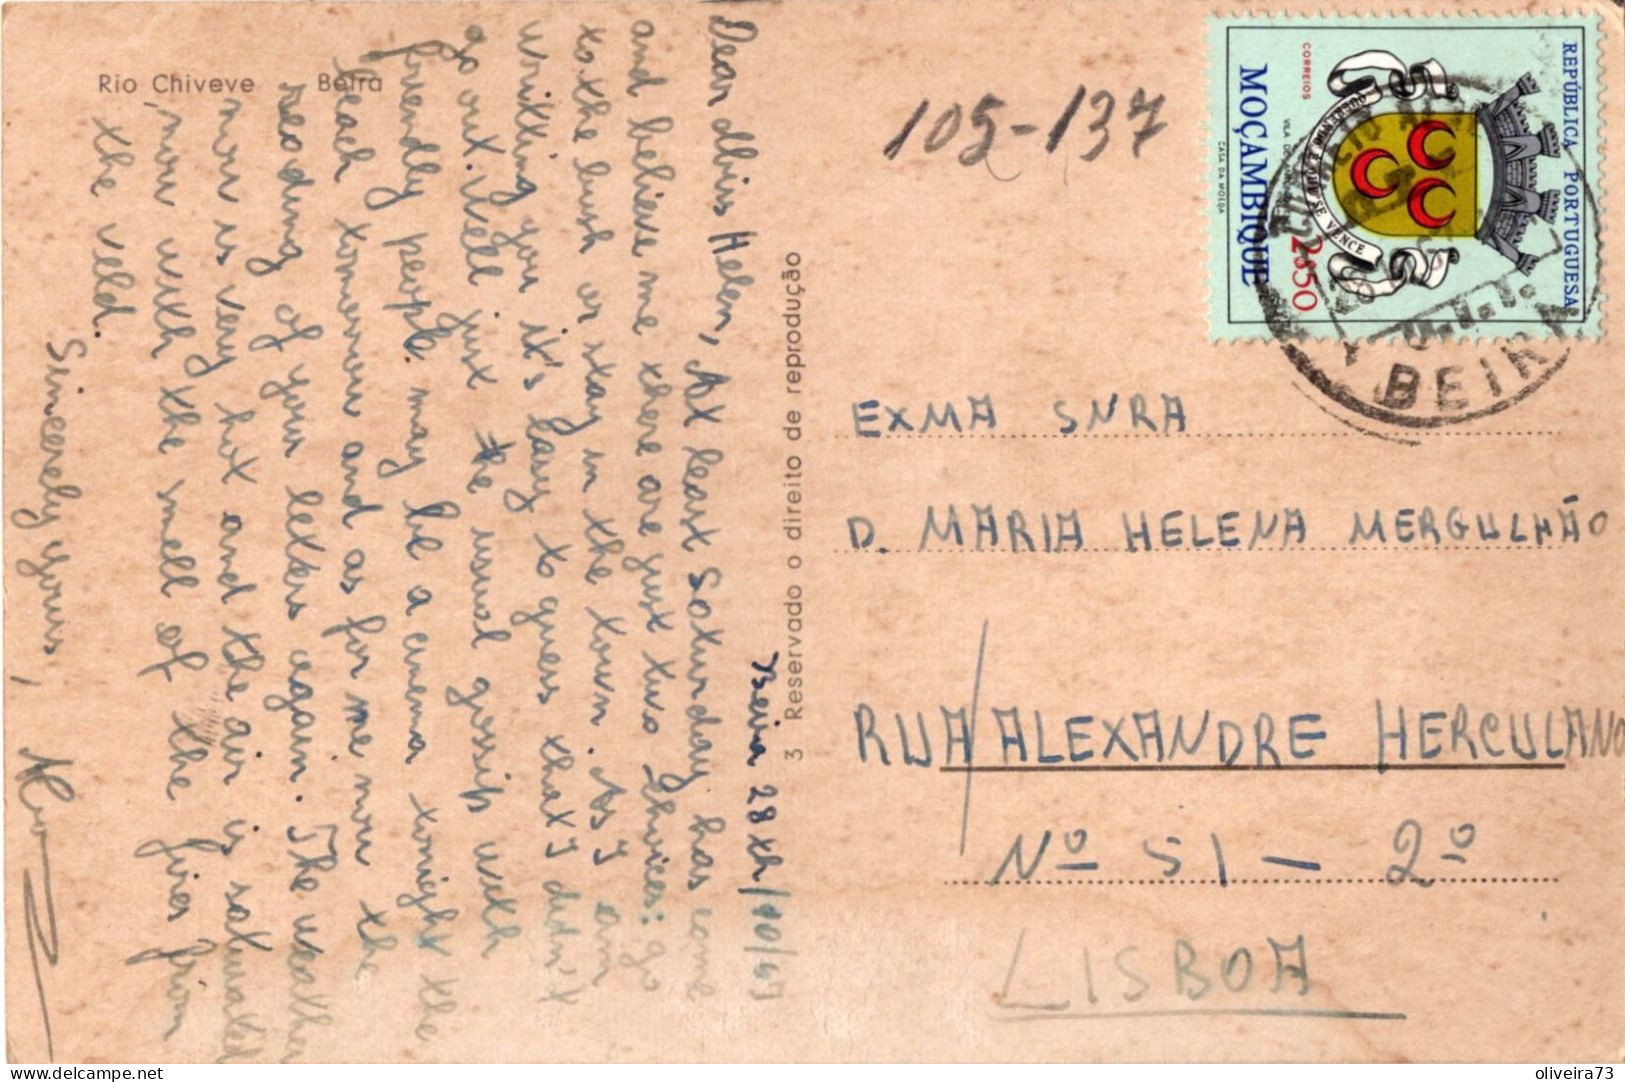 Rio Chiveve Beira
Beira 28th/10/67
Dear Helen,
At least Saturday has come
and believe me there are just two choices: go
to the bush or stay in the town. As I am
writting you it's easy to guess that I didn't
go out. Well just the usual gossip with
friendly people. may be a cinema tonight the
beach tomorrow and as for me now the
reading of your letters again. The weather
now is very hot and the air is saturated
now with the smell of the fires from
the veld.
Sincerely yours,
3 Reservado o direito de reprodução
105-137
REPÚBLICA PORTUGUESA
SE VENCE
VILA
2$50
CORREIOS
MOÇAMBIQUE
CASA DA MOEDA
BEIRA
EXMA SNRA
D. MARIA HELENA MERGULHÃO
RUA ALEXANDRE HERCULANO
Nº 51 - 2º
LISBOA
delcampe.net
oliveira73